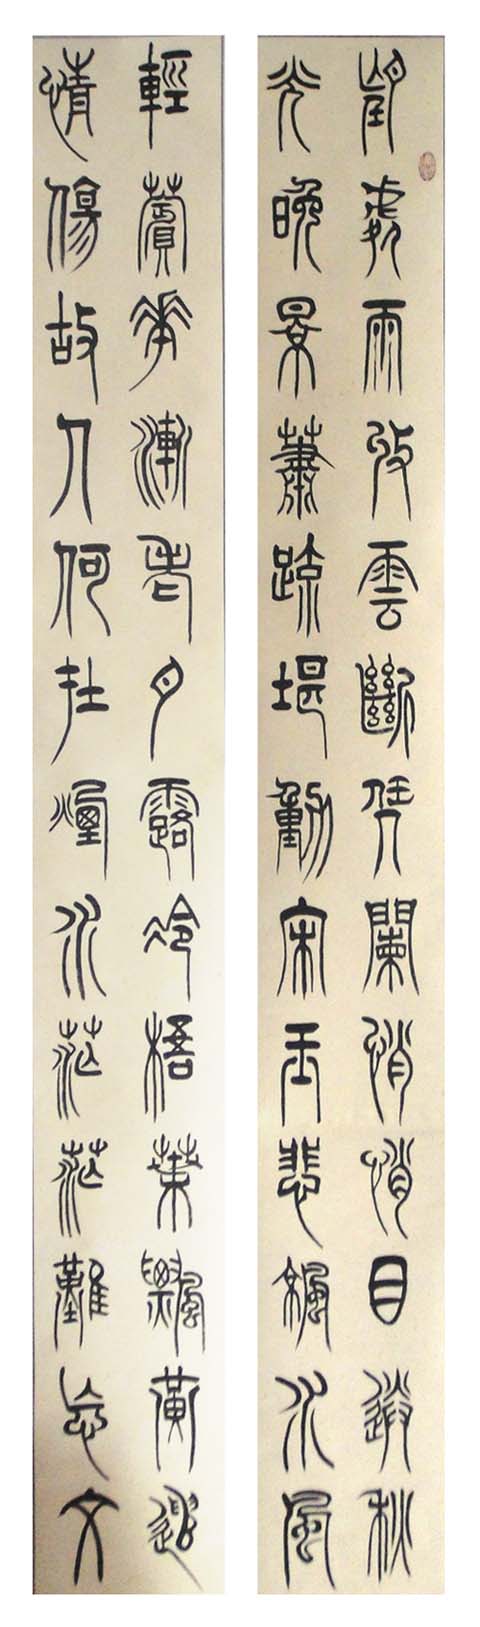 望處雨收雲斷凭闌悄悄目送秋
光晚景蕭疏堪動宋玉悲涼水風
輕薲花漸老月露冷梧葉飄黃遣
情傷故人何在煙水茫茫難忘文